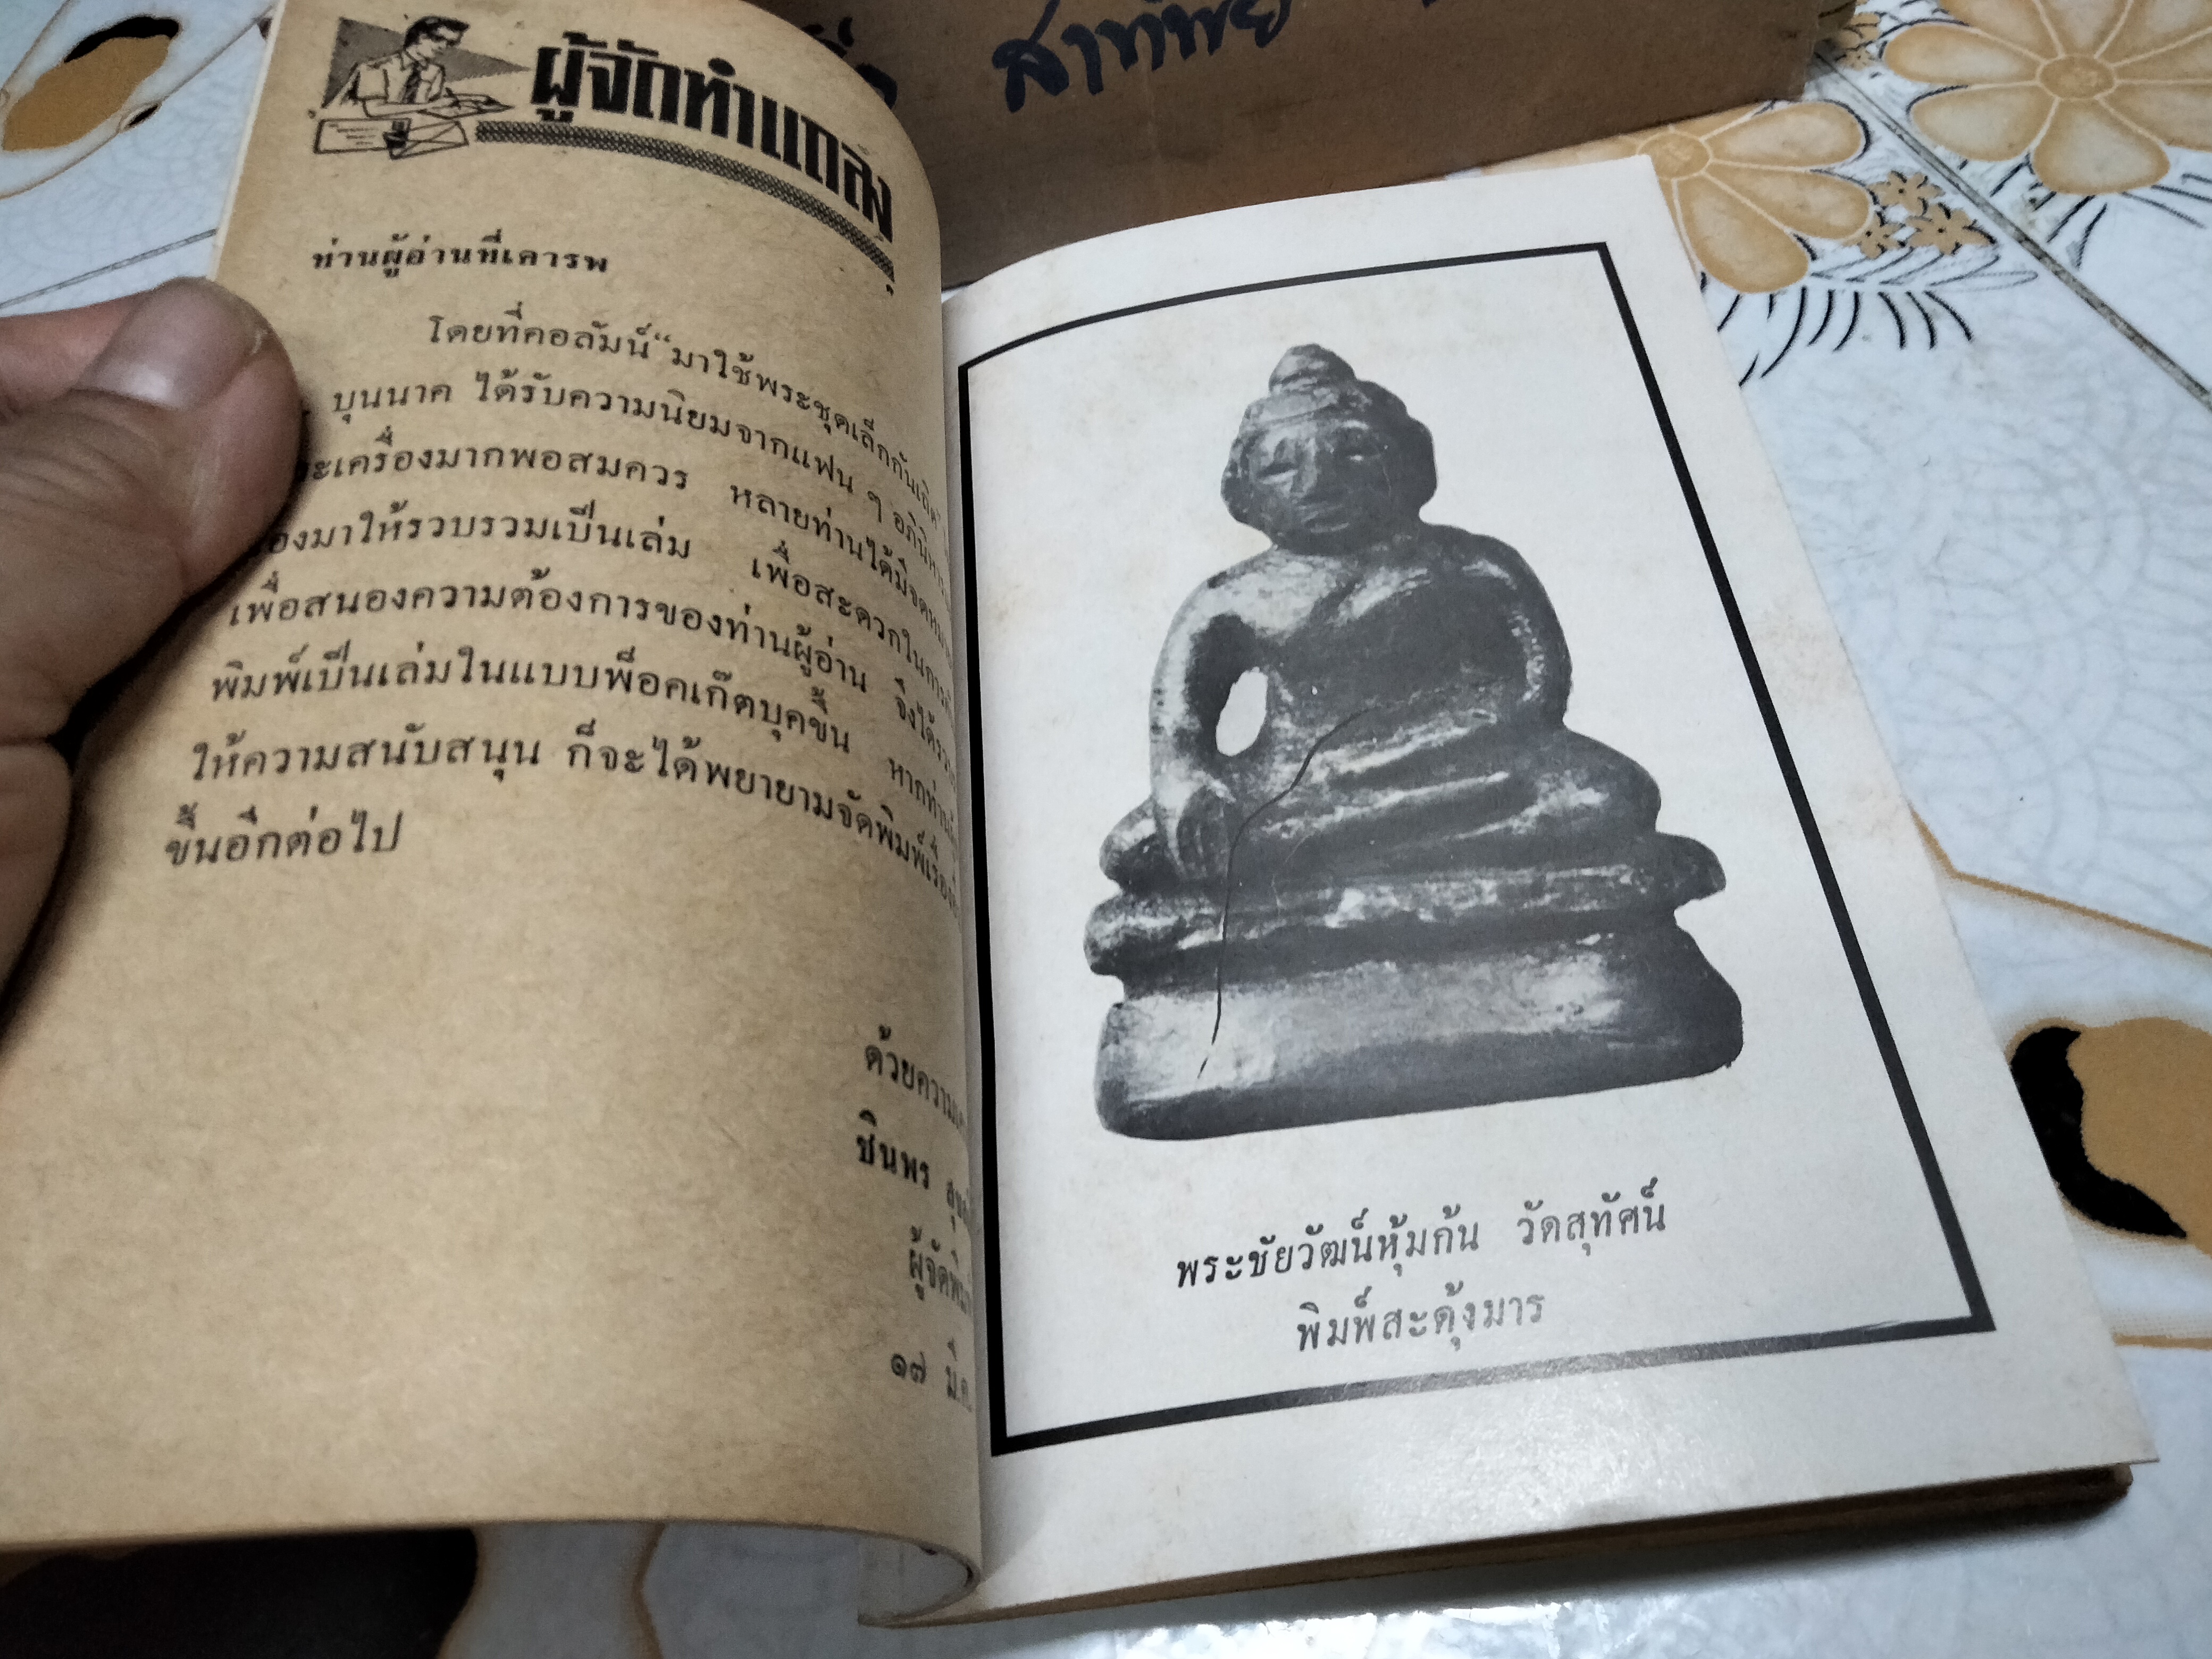 สาทิพย์
ผู้จัดทำแถลง
ท่านผู้อ่านที่เคารพ
โดยที่คอลัมน์ “มาใช้พระชุดเล็กกันเถิด”
บุนนาค ได้รับความนิยมจากแฟน ๆ
เครื่องมากพอสมควร หลายท่านได้มีจดหมาย
มาให้รวบรวมเป็นเล่ม เพื่อสะดวกในการ
เพื่อสนองความต้องการของท่านผู้อ่าน จึงได้
พิมพ์เป็นเล่มในแบบพ็อคเก๊ตบุคขึ้น หากท่าน
ให้ความสนับสนุน ก็จะได้พยายามจัดพิมพ์
ขึ้นอีกต่อไป
ชินพร
๑๗ มี.ค.
พระชัยวัฒน์หุ้มก้น วัดสุทัศน์
พิมพ์สะดุ้งมาร